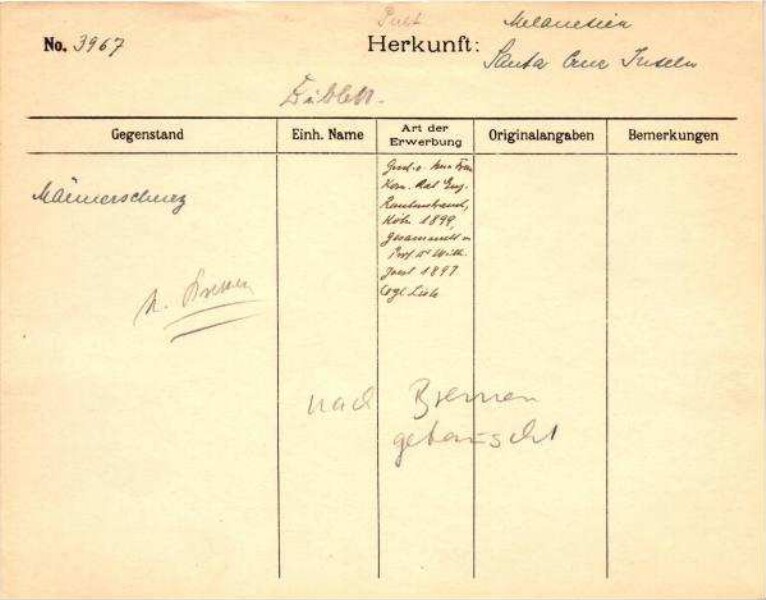 Pult
No. 3967 Herkunft: Melanesien
Santa Cruz Inseln
Gegenstand Einh. Name Art der Erwerbung Originalangaben Bemerkungen
Männerschurz
Gesch. v. Frau
Kom. Rat Eug.
Rautenstrauch,
Köln 1899,
gesammelt v.
Prof. Dr Wilh.
Joest 1897.
Vgl Liste
n. Bremen
nach Bremen
getauscht